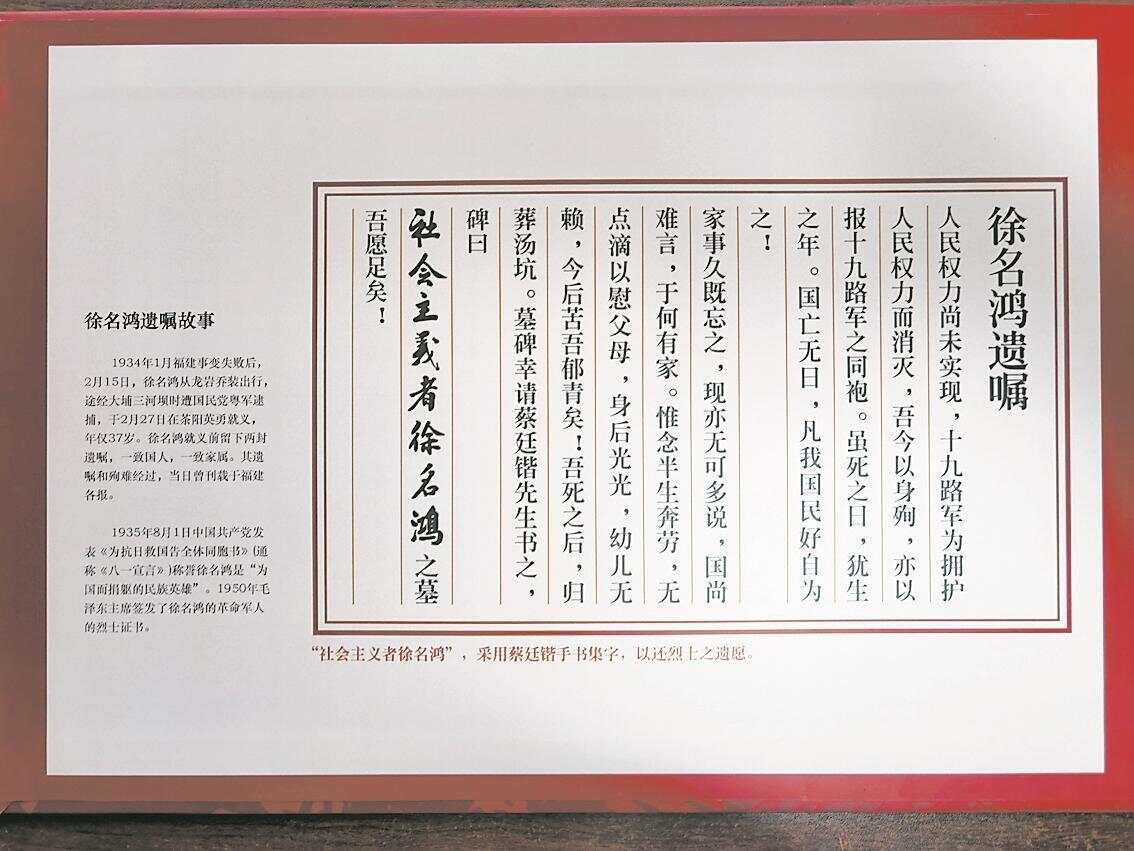 徐名鸿遗嘱
人民权力尚未实现，十九路军为拥护
人民权力而消灭，吾今以身殉，亦以
报十九路军之同袍。虽死之日，犹生
之年。国亡无日，凡我国民好自为
之！
家事久既忘之，现亦无可多说，国尚
难言，于何有家。惟念半生奔劳，无
点滴以慰父母，身后光光，幼儿无
赖，今后苦吾郁青矣！吾死之后，归
葬汤坑。墓碑幸请蔡廷锴先生书之，
碑曰
社会主义者徐名鸿之墓
吾愿足矣！
“社会主义者徐名鸿”，采用蔡廷锴手书集字，以还烈士之遗愿。
徐名鸿遗嘱故事
1934年1月福建事变失败后，
2月15日，徐名鸿从龙岩乔装出行，
途经大埔三河坝时遭国民党粤军逮
捕，于2月27日在茶阳英勇就义，
年仅37岁。徐名鸿就义前留下两封
遗嘱，一致国人，一致家属。其遗
嘱和殉难经过，当日曾刊载于福建
各报。
1935年8月1日中国共产党发
表《为抗日救国告全体同胞书》（通
称《八一宣言》）称誉徐名鸿是“为
国而捐躯的民族英雄”。1950年毛
泽东主席签发了徐名鸿的革命军人
的烈士证书。